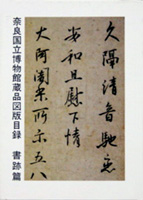 奈良国立博物館蔵品図版目録 書跡篇
久隔清音馳恋
安和且慰下情
大阿闍梨所示五八